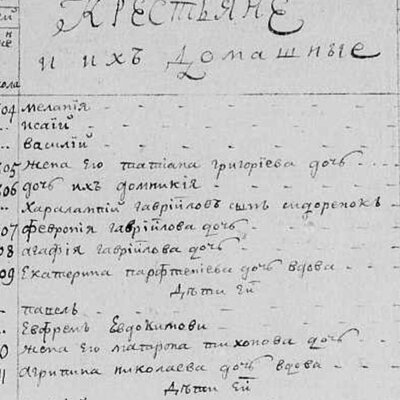 Крестьяне
и ихъ домашные
04 мелания
исаий
василий
05 жена его татиана григорiева дочь
06 дочь ихъ домникiя
Харалампий гаврийловъ сынъ сидоренокъ
07 феврония гаврийлова дочь
08 агафiя гаврийлова дочь
09 Екатерина парфтениева дочь вдова
Дѣти Ей
павелъ
Евфремъ Евдокимови
0 жена Его матрона тихонова дочь
11 агрипина николаева дочь вдова
Дѣти Ей